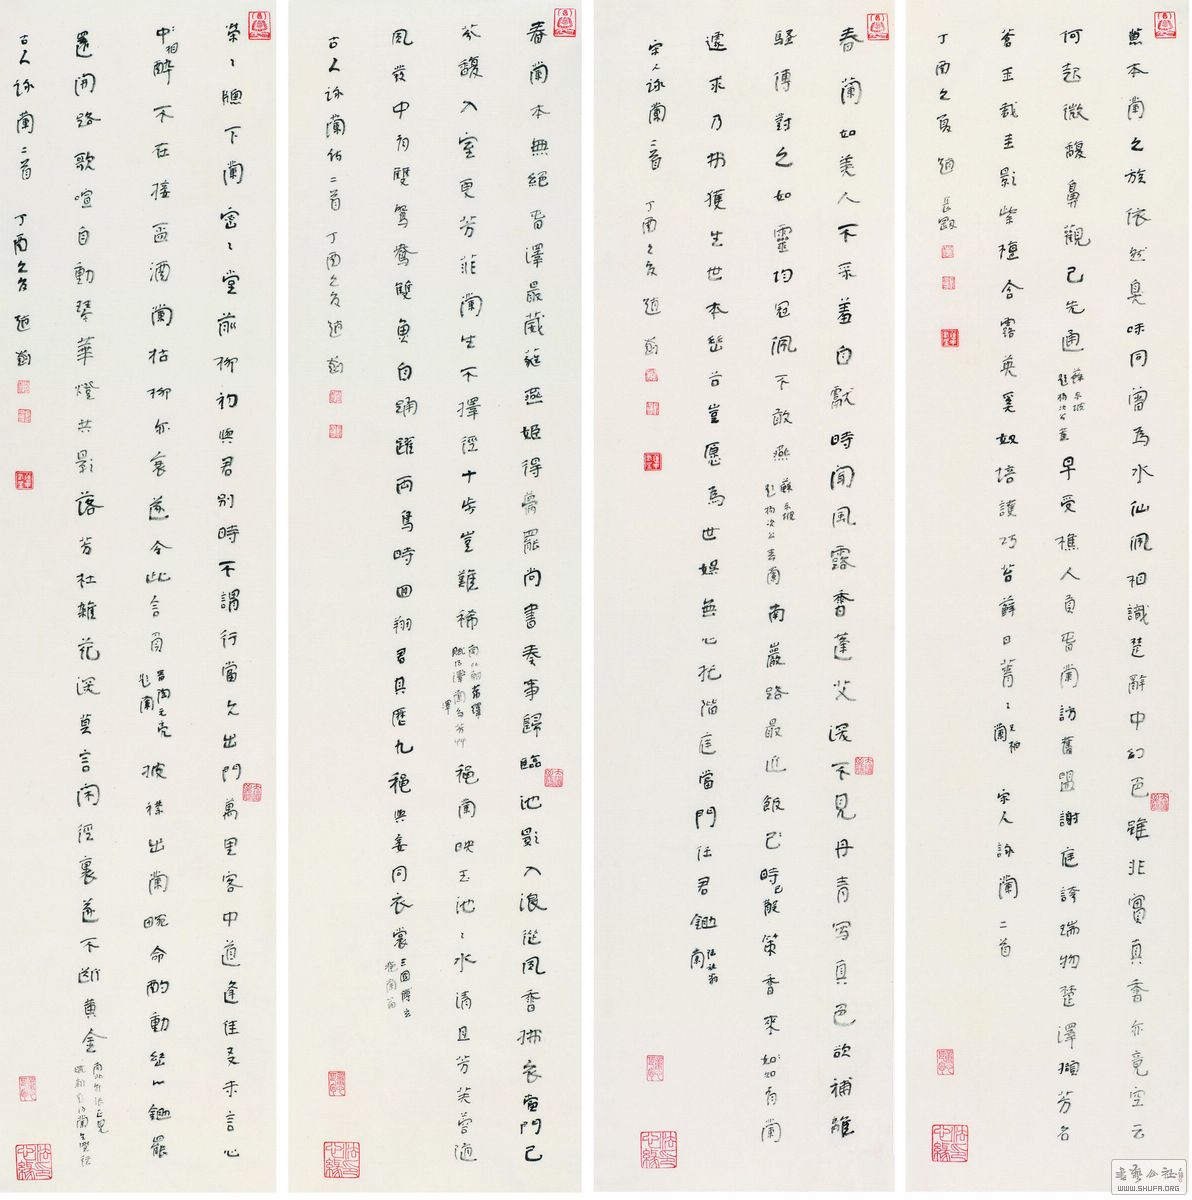 蕙本蘭之族依然臭味同曾為水仙佩相識楚辭中幻色雖非實真香亦竟空云
何起微馥鼻觀已先通
蘇東坡
題楊次公蕙
早受樵人貢香蘭訪舊盟謝庭誇瑞物楚澤擷芳名
蒼玉裁圭影紫檀含露英奚奴培護巧苔蘚日菁〻
王柏
蘭
宋人詠蘭二首
丁酉之夏 趙
春蘭如美人不采羞自獻時聞風露香蓬艾深不見丹青寫真色欲補離
騷傳對之如靈均冠佩不敢燕
蘇東坡
題楊次公春蘭
南巖路最近飯已時散策香來知有蘭
遽求乃弗獲生世本幽谷豈愿為世娛無心托階庭當門任君鋤
陸放翁
蘭
宋人詠蘭二首 丁酉之夏 趙
春蘭本無絕春澤最葳蕤燕姬得夢罷尚書奏事歸臨池影入浪從風香拂衣當門已
芬馥入室更芳菲蘭生不擇徑十步豈難稀
南北朝蕭繹
賦得蘭澤多芳草
秋蘭映玉池〻水清且芳芙蓉適
風發中有雙鴛鴦雙魚自踴躍兩鳥時回翔君其歷九秋與妾同衣裳
三國傅玄
秋蘭篇
古人詠蘭詩二首 丁酉之夏 趙
榮〻牕下蘭密〻堂前柳初與君別時不謂行當久出門萬里客中道逢佳友未言心
中相醉不在接盃酒蘭枯柳亦衰遂令此言負
晉陶元亮
題蘭
披襟出蘭畹命酌動幽心鋤罷
還開路歌喧自動琴華燈共影落芳杜雜花深莫言閑徑裏遂不斷黃金
南北朝張正見
賦新題得蘭生野徑
古人詠蘭二首 丁酉之夏 趙
WWW.SHUFA.ORG